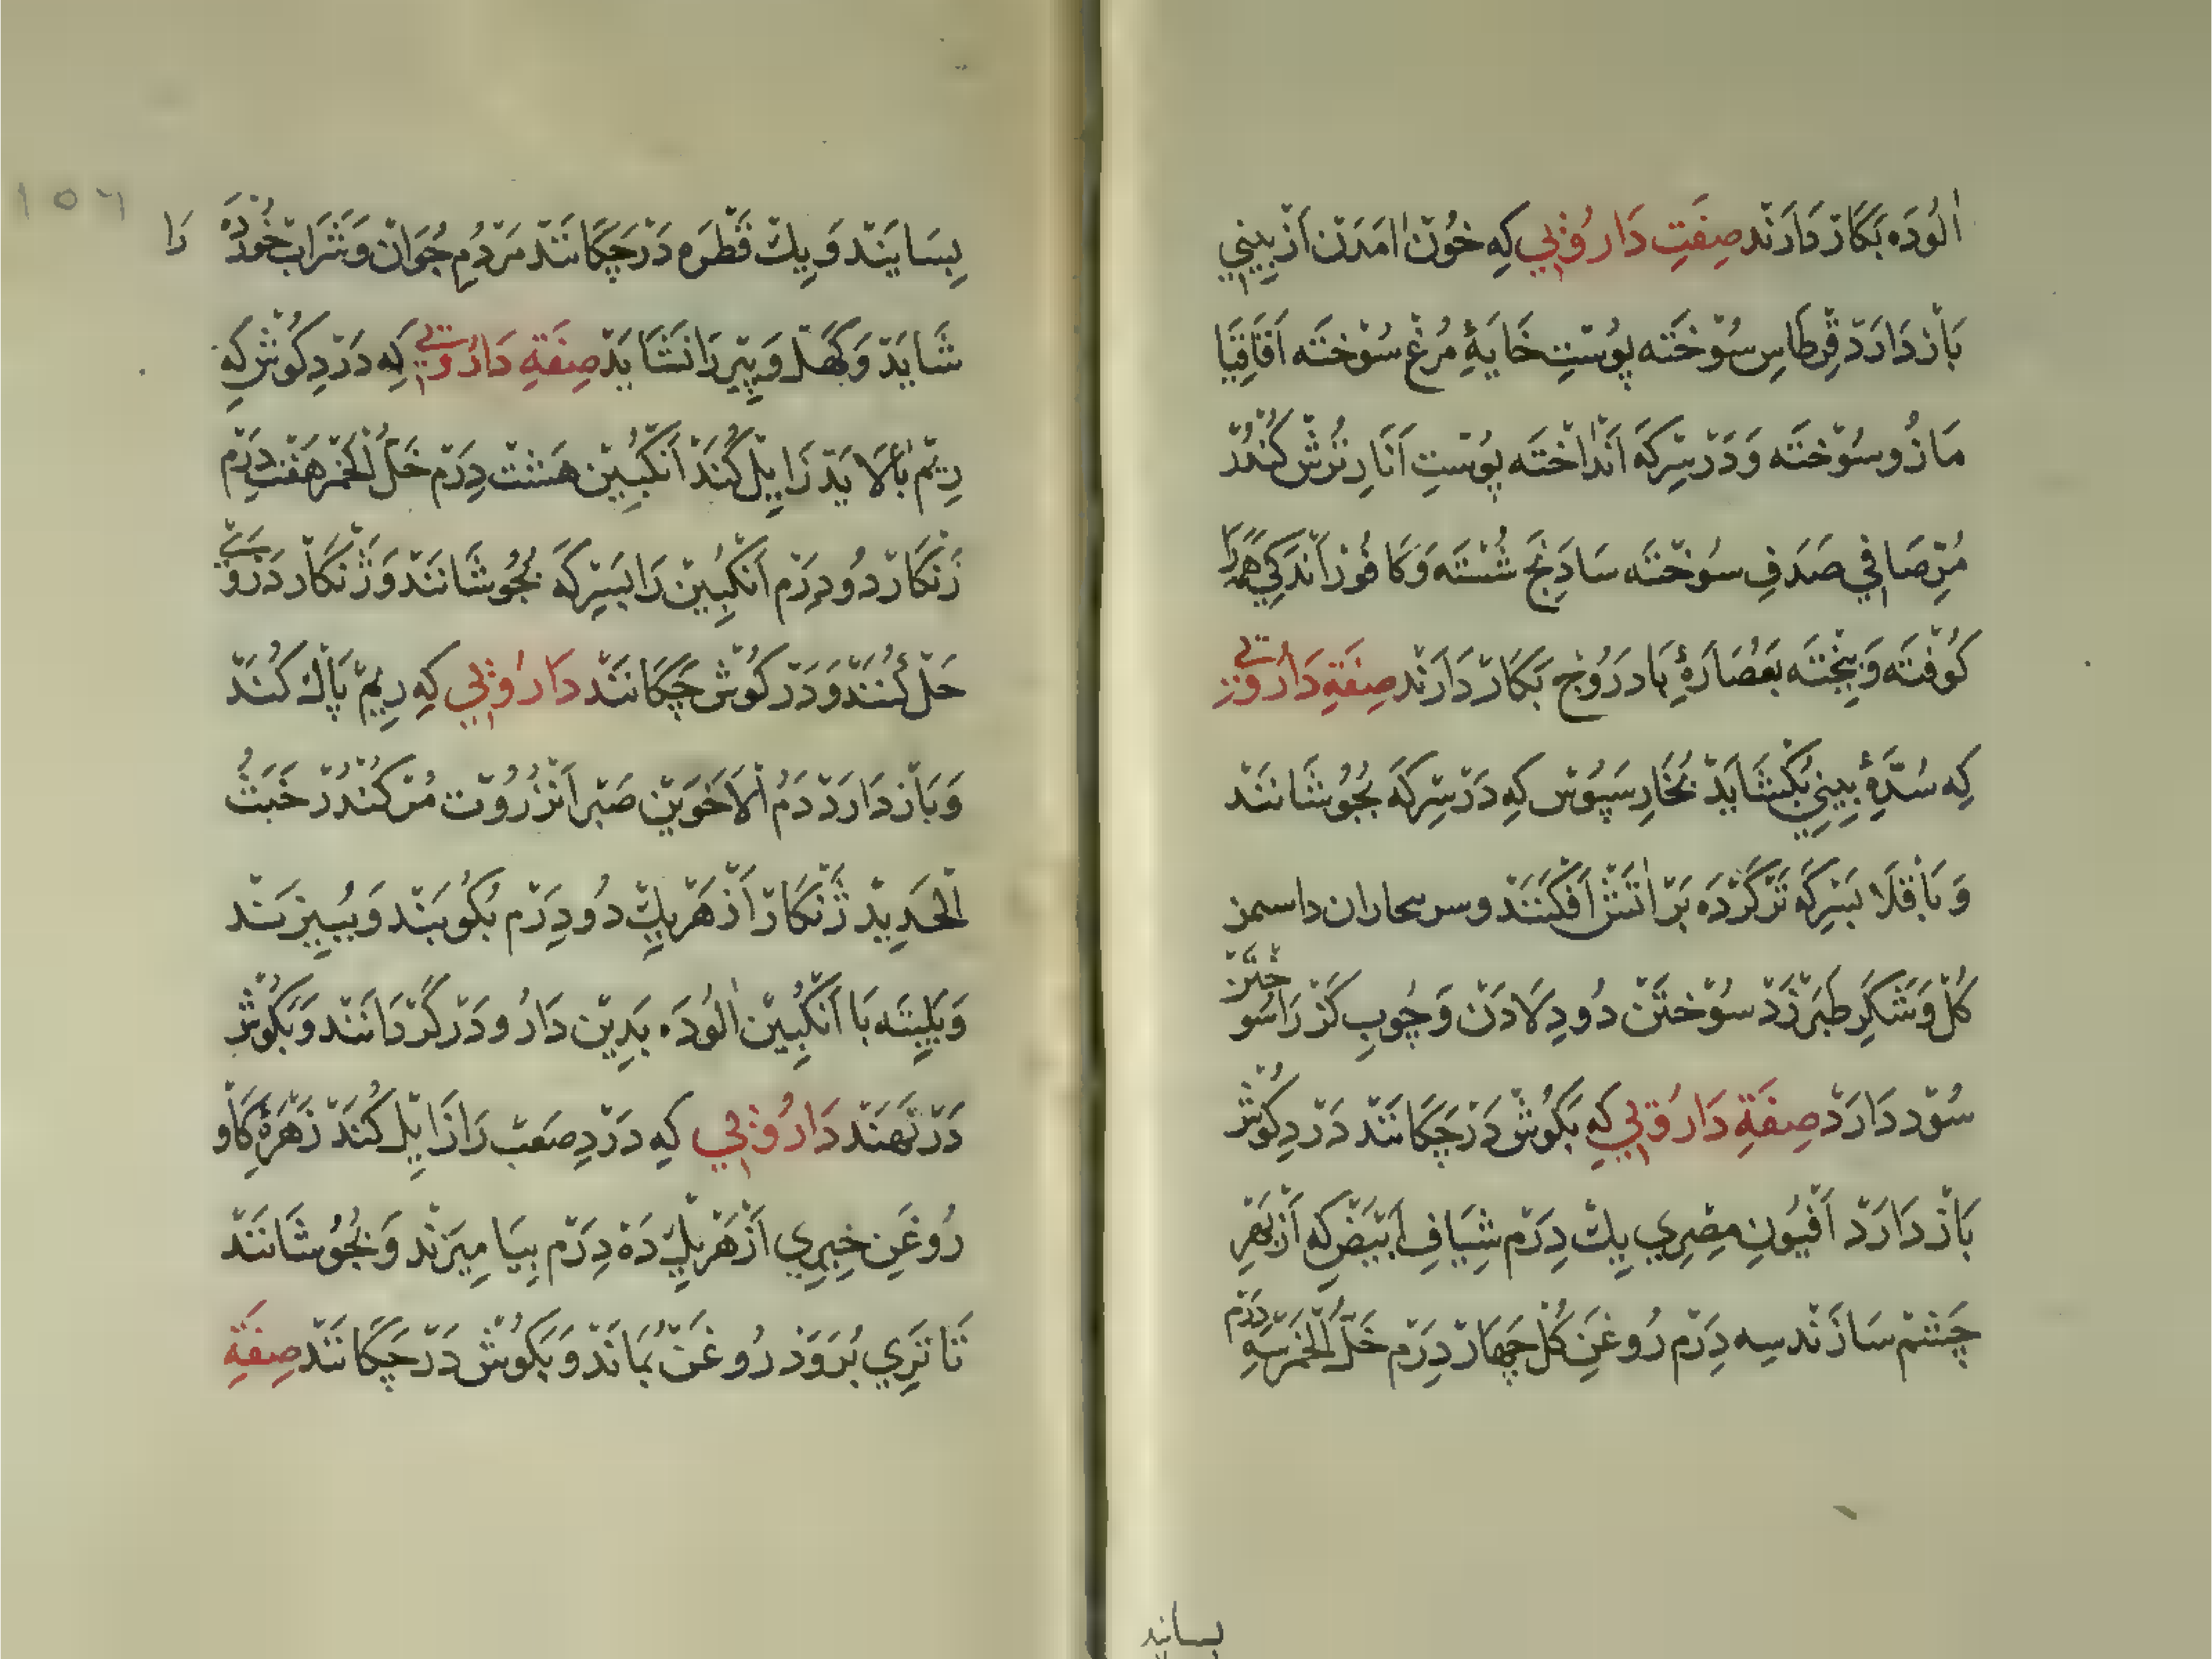 اٰلُودَه بَكَارْ دَارَنْد صِفَتِ دَارُوْيي كِه خُونْ اٰمَدَن اَزْ بِيني
بَازْ دَارَدْ قِرطَاسِ سُوْخْتَه پُوسْتِ خَايَهٔ مُرْغِ سُوْخْتَه اَقَاقِيَا
مَازُو سُوْخْتَه وَدَرْ سِركَه اَنْدَاخْتَه پُوسْتِ اَنَارِ تُرُشْ كُنْدُرْ
مُرِّ صَافِي صَدَفِ سُوْخْتَه سَادَنَج شُسْتَه وَكَافُوْر اَنْدَكِي هَمَه رَا
كُوفْتَه وَبِيخْتَه بَعُصَارَهٔ بَادَرُوْج بَكَارْ دَارَنْد صِفَةِ دَارُوْيي
كِه سُدَّهٔ بِينِي بُكْشَايَدْ بُخَارِ سَپُوسْ كِه دَرْ سِركَه بُجُوشَانَنْد
وَبَاقِلَا بَسِركَه تَرْ كَرْدَه بَرْ اٰتَشْ اَفْكَنَنْد وسر بحاران داسمن
كُلْ وَشَكَرِ طَبَرْزَدْ سُوْخْتَنْ دُودِ لَادَنْ وَچُوبِ كَزْ رَا سُوخْتَنْ
سُوْد دَارَدْ صِفَةِ دَارُوْيي كِه بَكُوشْ دَرْچَكَانَنْد دَرْدِ كُوشْ
بَازْ دَارَدْ اَفْيُونِ مِصْرِي يكْ دِرَمْ شِيَافِ اَبْيَضْ كِه اَزْ بَهْرِ
چَشْمْ سَازَنْد سِه دِرَمْ رُوغَنِ كُلْ چَهَارْ دِرَمْ خَلُّ الْخَمْر سِه دِرَمْ
بسايند
١٥٦
بِسَايَنْد وَيكْ قَطْرَه دَرْچَكَانَنْد مَرْدُمِ جُوَانْ وَشَرَابْ خُورْدَه رَا
شَايَدْ وَكَهْلْ وَپِيرْ رَا نَشَايَدْ صِفَةِ دَارُوْيي كِه دَرْدِ كُوشْ كِه
رِيمْ بَالَايَدْ زَايِلْ كُنَدْ اَنْكَبِينْ هَشْت دِرَمْ خَلُّ الْخَمْر هَفْت دِرَمْ
زَنْكَارْ دُو دِرَمْ اَنْكَبِينْ رَا بَسِركَه بُجُوشَانَنْد وَزَنْكَار دَرْوَيْ
حَلْ كُنَنْد وَدَرْ كُوشْ چَكَانَنْد دَارُوْيي كِه رِيمْ پَاكْ كُنَدْ
وَبَازْ دَارَدْ دَمُ اْلاَخَوَيْن صَبْر اَنْزَرُوْت مُرْ كُنْدُرْ خَبَثُ
الْحَدِيدْ زَنْكَارْ اَزْ هَرْ يكِي دُو دِرَمْ بُكُوبَنْد وَبِبِيزَنْد
وَپَلِيتَه بَا اَنْكَبِينْ اٰلُودَه بَدِينْ دَارُو دَرْ كَرْدَانَنْد وَبَكُوشْ
دَرْ نَهَنْد دَارُوْيي كِه دَرْدِ صَعب رَا زَايِلْ كُنَدْ زَهْرَهٔ كَاْو
رُوغَنِ خِيرِي اَزْ هَرْ يكِي دَهْ دِرَمْ بِيَامِيزَنْد وَبُجُوشَانَنْد
تَا تَرِي بُرَوَدْ رُوغَنْ بُمَانَدْ وَبَكُوشْ دَرْچَكَانَنْد صِفَةِ